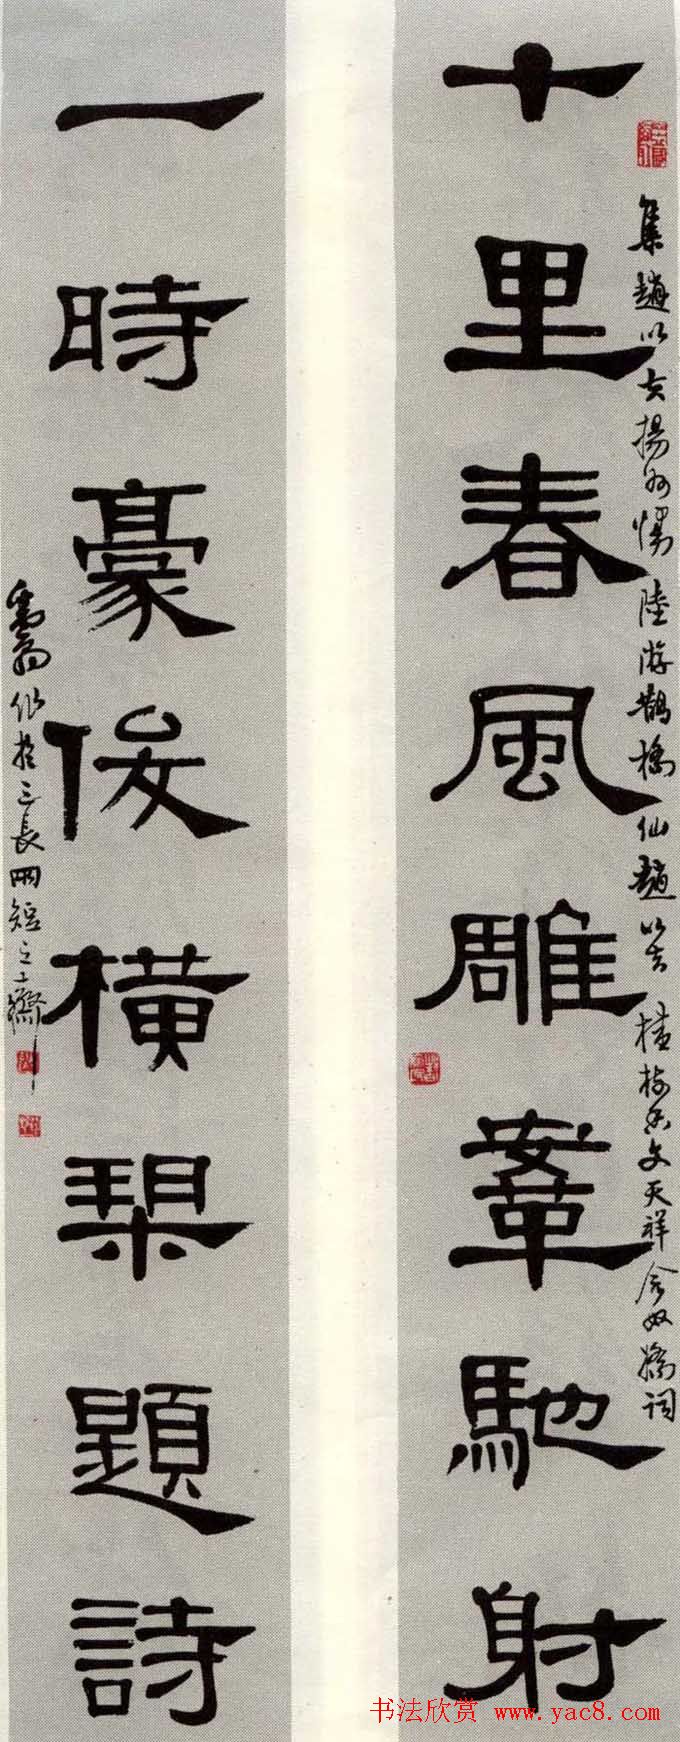 十里春風雕鞌馳射
集趙以夫揚州慢 陸游鵲橋仙 趙以夫桂枝香 文天祥念奴嬌詞
一時豪俊橫槊題詩
作於三長兩短之齋
书法欣赏 www.yac8.com